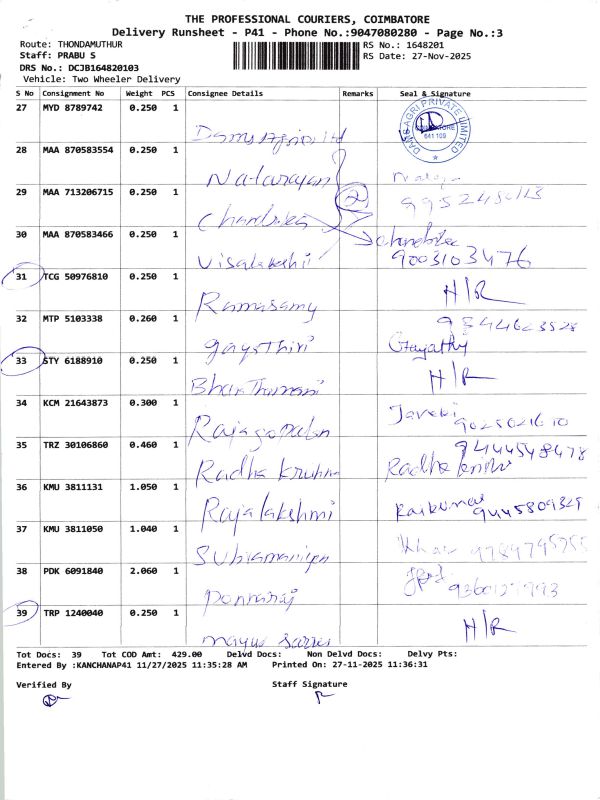 THE PROFESSIONAL COURIERS, COIMBATORE
Delivery Runsheet - P41 - Phone No.:9047080280 - Page No.:3
Route: THONDAMUTHUR RS No.: 1648201
Staff: PRABU S RS Date: 27-Nov-2025
DRS No.: DCJB164820103
Vehicle: Two Wheeler Delivery
S No Consignment No Weight PCS Consignee Details Remarks Seal & Signature
27 MYD 8789742 0.250 1
28 MAA 870583554 0.250 1 Natarayan
29 MAA 713206715 0.250 1 Chandrika 2
30 MAA 870583466 0.250 1 Visalakshi 9003103476
31 TCG 50976810 0.250 1 Ramasamy H/R
32 MTP 5103338 0.260 1 gayathiri Gayathy
33 STY 6188910 0.250 1 H/R
34 KCM 21643873 0.300 1 Rajagopalan
35 TRZ 30106860 0.460 1 Radha Krishna 9444548478
36 KMU 3811131 1.050 1 Rajalakshmi Rajkumar 9445809329
37 KMU 3811050 1.040 1 Subramaniyan
38 PDK 6091840 2.060 1 Ponnuraj
39 TRP 1240040 0.250 1 H/R
Tot Docs: 39 Tot COD Amt: 429.00 Delvd Docs: Non Delvd Docs: Delvy Pts:
Entered By :KANCHANAP41 11/27/2025 11:35:28 AM Printed On: 27-11-2025 11:36:31
Verified By Staff Signature